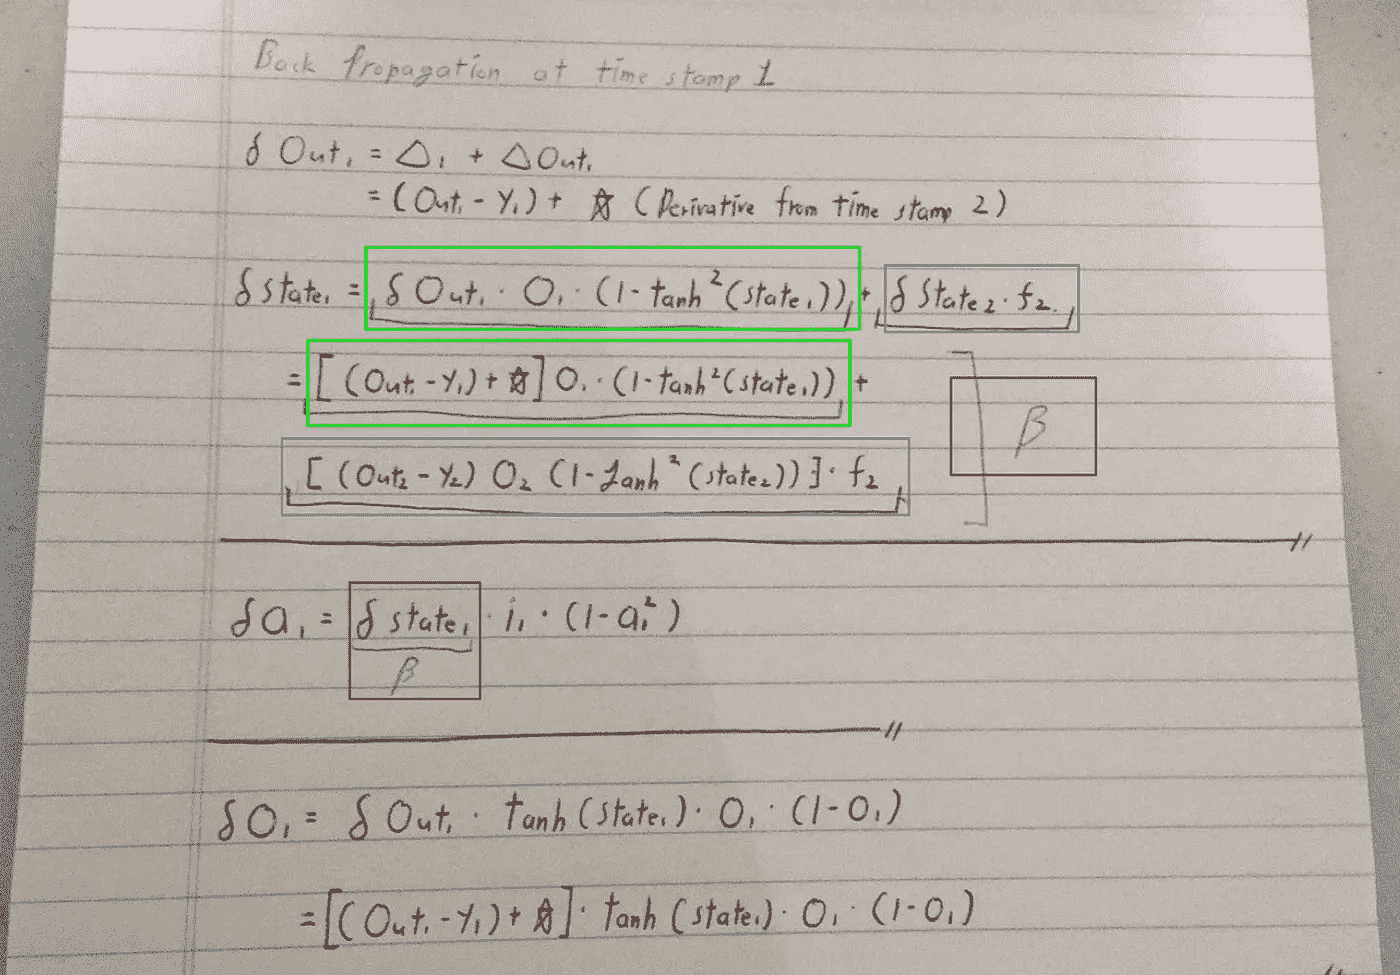 Back propagation at time stamp 1
δ Out₁ = △₁ + △Out₁
= (Out₁ - Y₁) + ☆ (Derivative from time stamp 2)
δ state₁ = δ Out₁ · O₁ · (1-tanh²(state₁)) + δ State₂ · f₂
= [(Out₁ - Y₁) + ☆] O₁ · (1-tanh²(state₁)) +
[(Out₂ - Y₂) O₂ (1-tanh²(state₂))] · f₂
β
δa₁ = δ state₁ · i₁ · (1-a₁²)
β
δO₁ = δ Out₁ · tanh(state₁) · O₁ · (1-O₁)
= [(Out₁ - Y₁) + ☆] · tanh(state₁) · O₁ · (1-O₁)